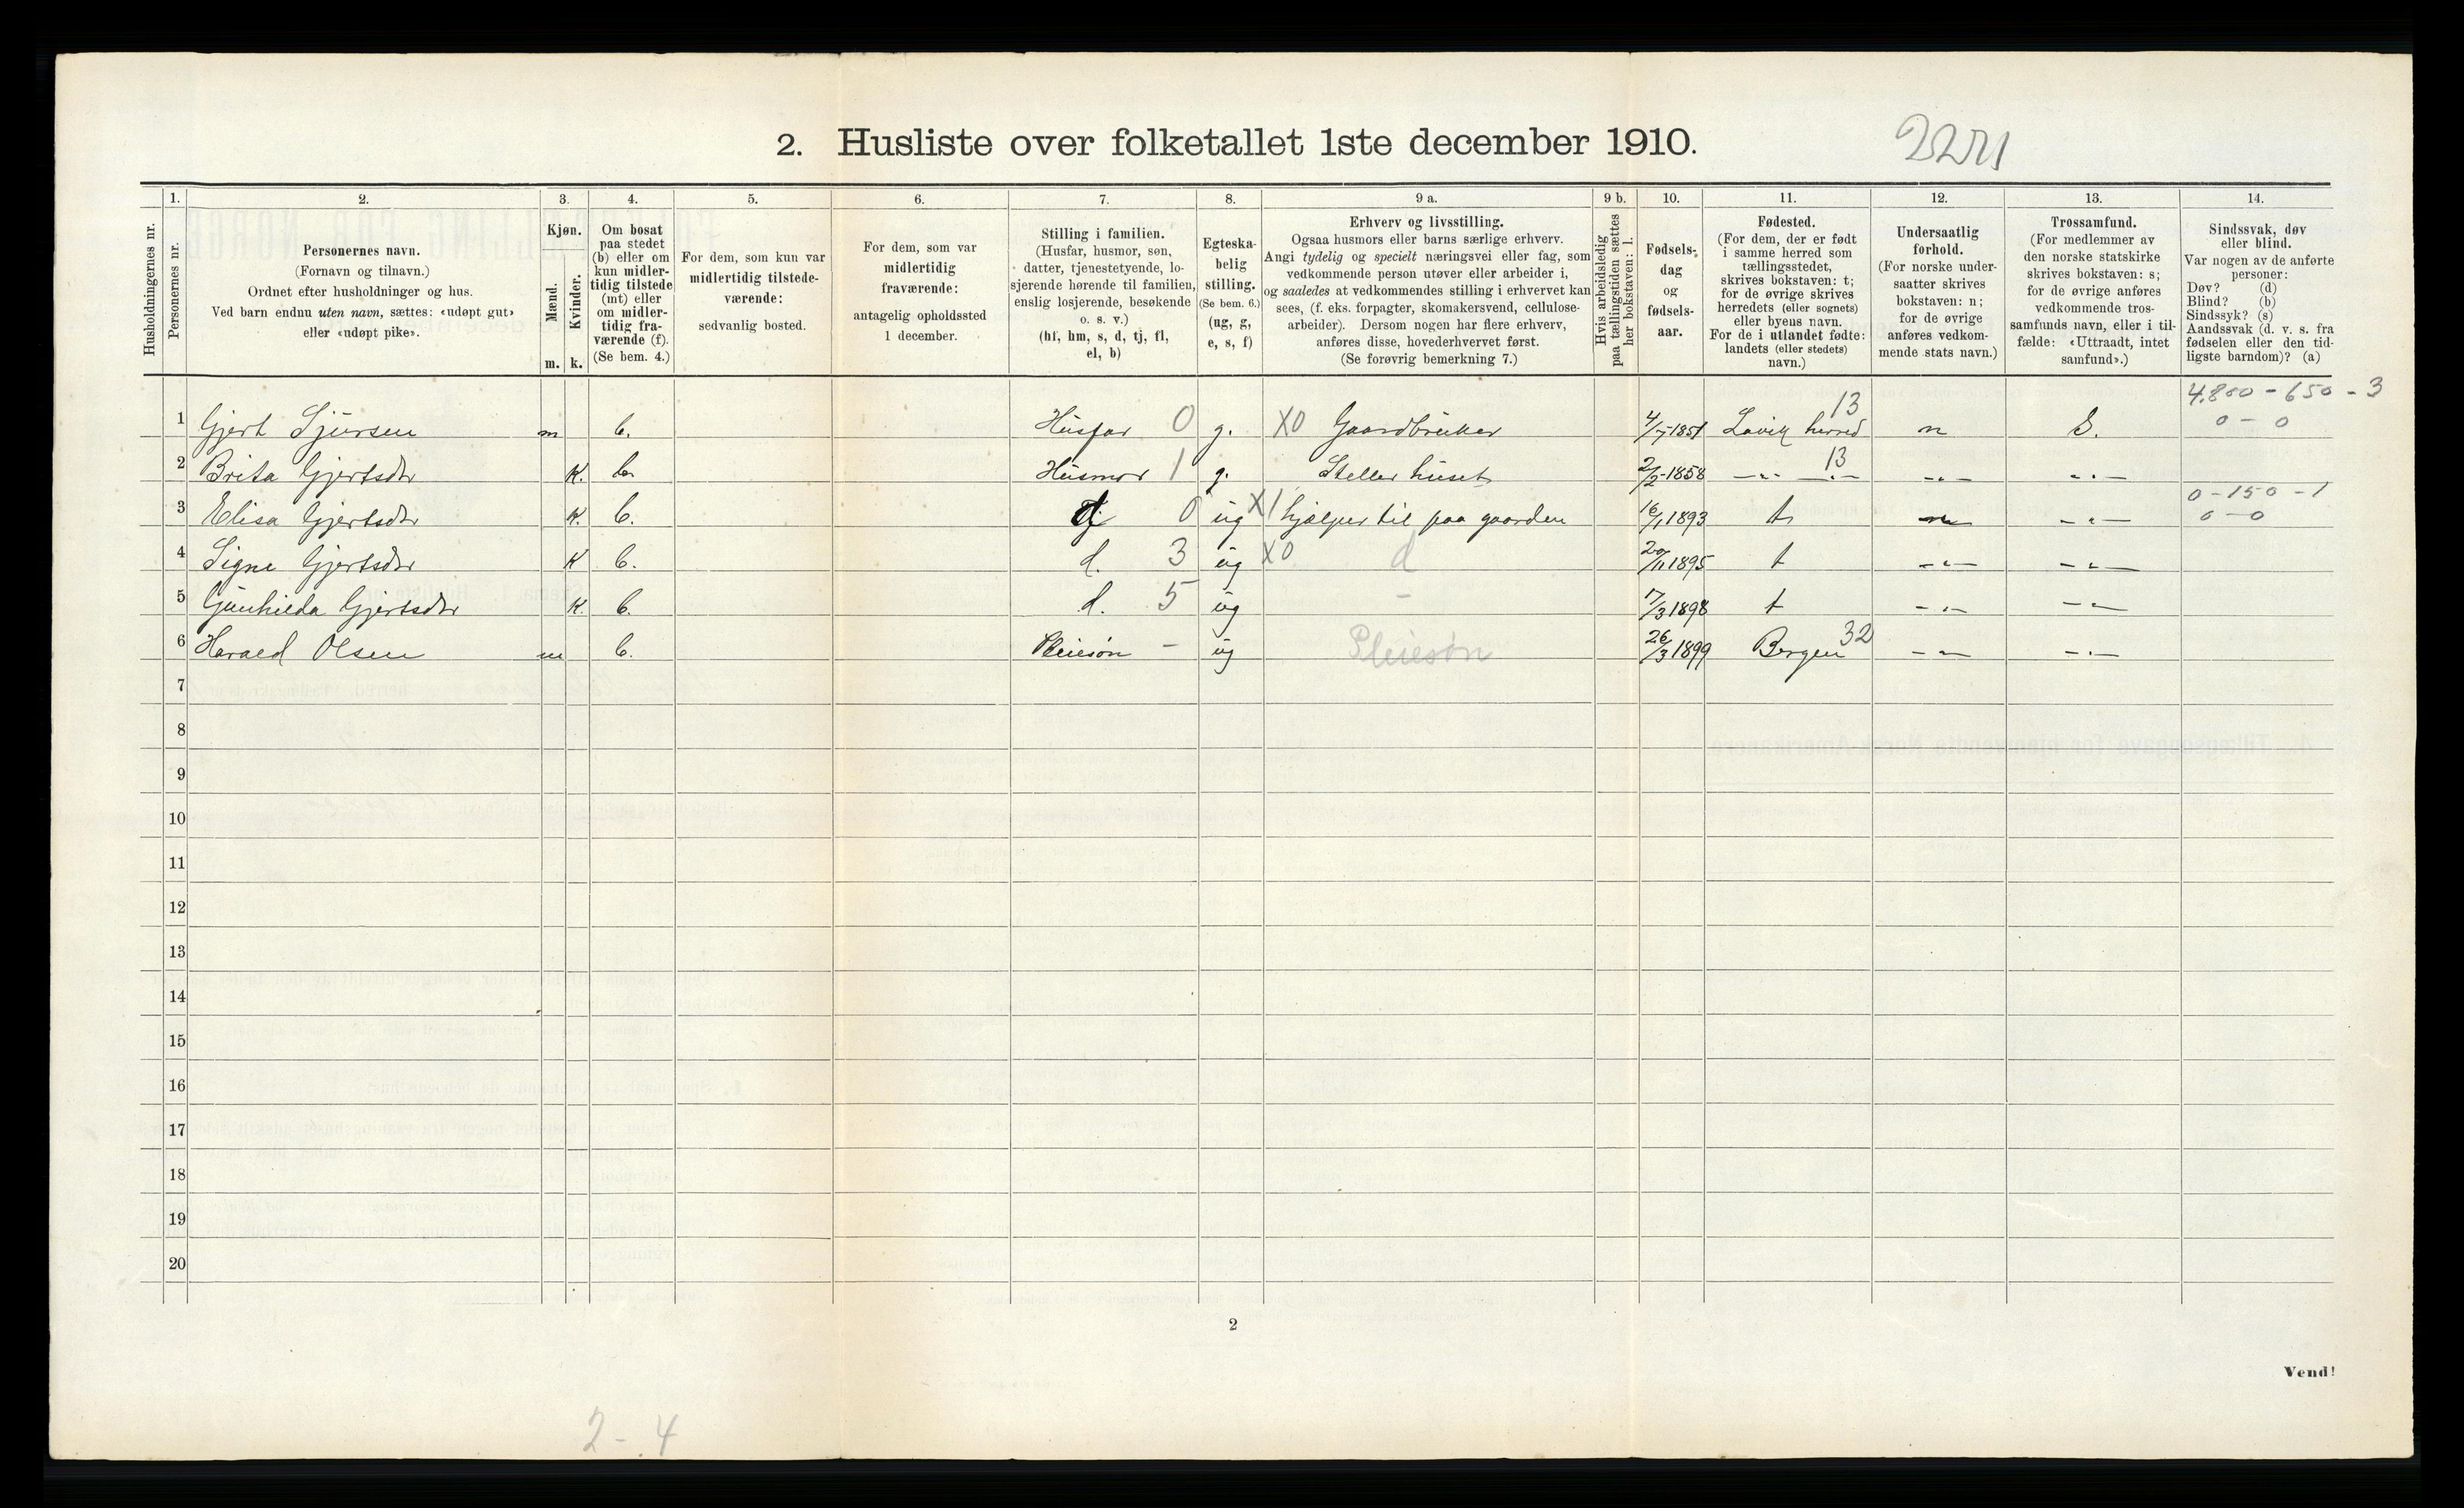 2. Husliste over folketallet 1ste december 1910.
1. 2. 3. 4. 5. 6. 7. 8. 9 a. 9 b. 10. 11. 12. 13. 14.
Husholdningernes nr.
Personernes nr.
Personernes navn.
(Fornavn og tilnavn.)
Ordnet efter husholdninger og hus.
Ved barn endnu uten navn, sættes: «udøpt gut»
eller «udøpt pike».
Kjøn.
Mænd.
Kvinder.
m. k.
Om bosat
paa stedet
(b) eller om
kun midler-
tidig tilstede
(mt) eller
om midler-
tidig fra-
værende (f).
(Se bem. 4.)
For dem, som kun var
midlertidig tilstede-
værende:
sedvanlig bosted.
For dem, som var
midlertidig
fraværende:
antagelig opholdssted
1 december.
Stilling i familien.
(Husfar, husmor, søn,
datter, tjenestetyende, lo-
sjerende hørende til familien,
enslig losjerende, besøkende
o. s. v.)
(hf, hm, s, d, tj, fl,
el, b)
Egteska-
belig
stilling.
(Se bem. 6.)
(ug, g,
e, s, f)
Erhverv og livsstilling.
Ogsaa husmors eller barns særlige erhverv.
Angi tydelig og specielt næringsvei eller fag, som
vedkommende person utøver eller arbeider i,
og saaledes at vedkommendes stilling i erhvervet kan
sees, (f. eks. forpagter, skomakersvend, cellulose-
arbeider). Dersom nogen har flere erhverv,
anføres disse, hovederhvervet først.
(Se forøvrig bemerkning 7.)
Hvis arbeidsledig
paa tællingstiden sættes
her bokstaven: l.
Fødsels-
dag
og
fødsels-
aar.
Fødested.
(For dem, der er født
i samme herred som
tællingsstedet,
skrives bokstaven: t;
for de øvrige skrives
herredets (eller sognets)
eller byens navn.
For de i utlandet fødte:
landets (eller stedets)
navn.)
Undersaatlig
forhold.
(For norske under-
saatter skrives
bokstaven: n;
for de øvrige
anføres vedkom-
mende stats navn.)
Trossamfund.
(For medlemmer av
den norske statskirke
skrives bokstaven: s;
for de øvrige anføres
vedkommende tros-
samfunds navn, eller i til-
fælde: «Uttraadt, intet
samfund».)
Sindssvak, døv
eller blind.
Var nogen av de anførte
personer:
Døv? (d)
Blind? (b)
Sindssyk? (s)
Aandssvak (d. v. s. fra
fødselen eller den tid-
ligste barndom)? (a)
4.800 - 650 - 3
1 Gjert Sjursen m b. Husfar 0 g. X0 Gaardbruker 4/7-1851 Lavik herred 13 n S. 0 - 0
2 Brita Gjertsdtr K. b. Husmor 1 g. Steller huset 2/2-1858 -"- 13 -"- -"- -"-
0 - 150 - 1
3 Elisa Gjertsdtr K. b. d 0 ug X1 hjælper til paa gaarden 16/1 1893 t -"- -"- 0 - 0
4 Signe Gjertsdtr K b. d. 3 ug X0 d 20/11 1895 t -"- -"-
5 Gunhilda Gjertsdtr K. b. d. 5 ug - 17/3 1898 t -"- -"-
6 Harald Olsen m b. Pleiesøn - ug Pleiesøn 26/3 1899 Bergen 32 -"- -"-
7
8
9
10
11
12
13
14
15
16
17
18
19
20
2
Vend!
2 - 4